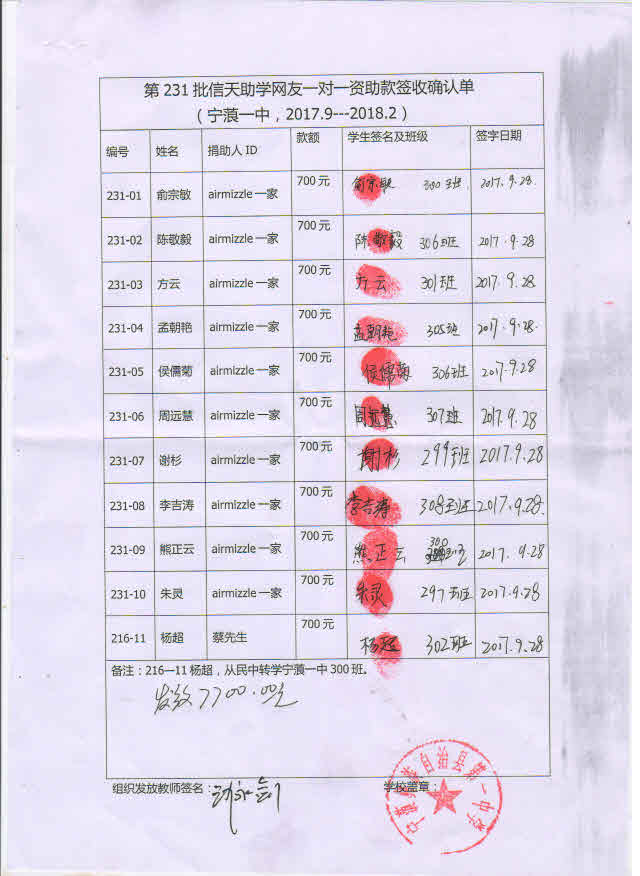 第 231 批信天助学网友一对一资助款签收确认单
（宁蒗一中，2017.9---2018.2）
编号 姓名 捐助人 ID 款额 学生签名及班级 签字日期
231-01 俞宗敏 airmizzle 一家 700 元 俞宗敏 300班 2017.9.28.
231-02 陈敬毅 airmizzle 一家 700 元 陈敬毅 306班 2017.9.28
231-03 方云 airmizzle 一家 700 元 方云 301班 2017.9.28
231-04 孟朝艳 airmizzle 一家 700 元 孟朝艳 305班 2017.9.28.
231-05 侯儒菊 airmizzle 一家 700 元 侯儒菊 306班 2017.9.28
231-06 周远慧 airmizzle 一家 700 元 周远慧 307班 2017.9.28
231-07 谢杉 airmizzle 一家 700 元 谢杉 299班 2017.9.28
231-08 李吉涛 airmizzle 一家 700 元 李吉涛 308班 2017.9.28
231-09 熊正云 airmizzle 一家 700 元 熊正云 300 2017.9.28
231-10 朱灵 airmizzle 一家 700 元 朱灵 297班 2017.9.28
216-11 杨超 蔡先生 700 元 杨超 302班 2017.9.28
备注：216—11 杨超，从民中转学宁蒗一中 300 班。
发放7700.00元
组织发放教师签名： 学校盖章：
宁蒗彝族自治县第一中学